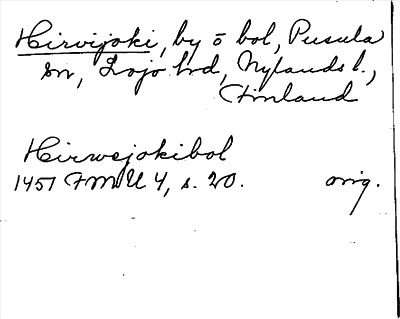 Hirvijoki, by o bol, Pusula
sn, Lojo hrd, Nylands l.,
Finland
Hirwejokibol
1451 FMU 4, s. 20.     orig.